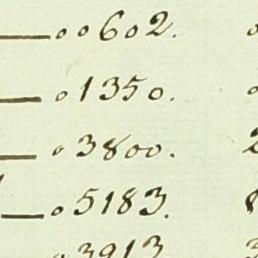 —00602.
—01350.
—03800.
—05183.
03913